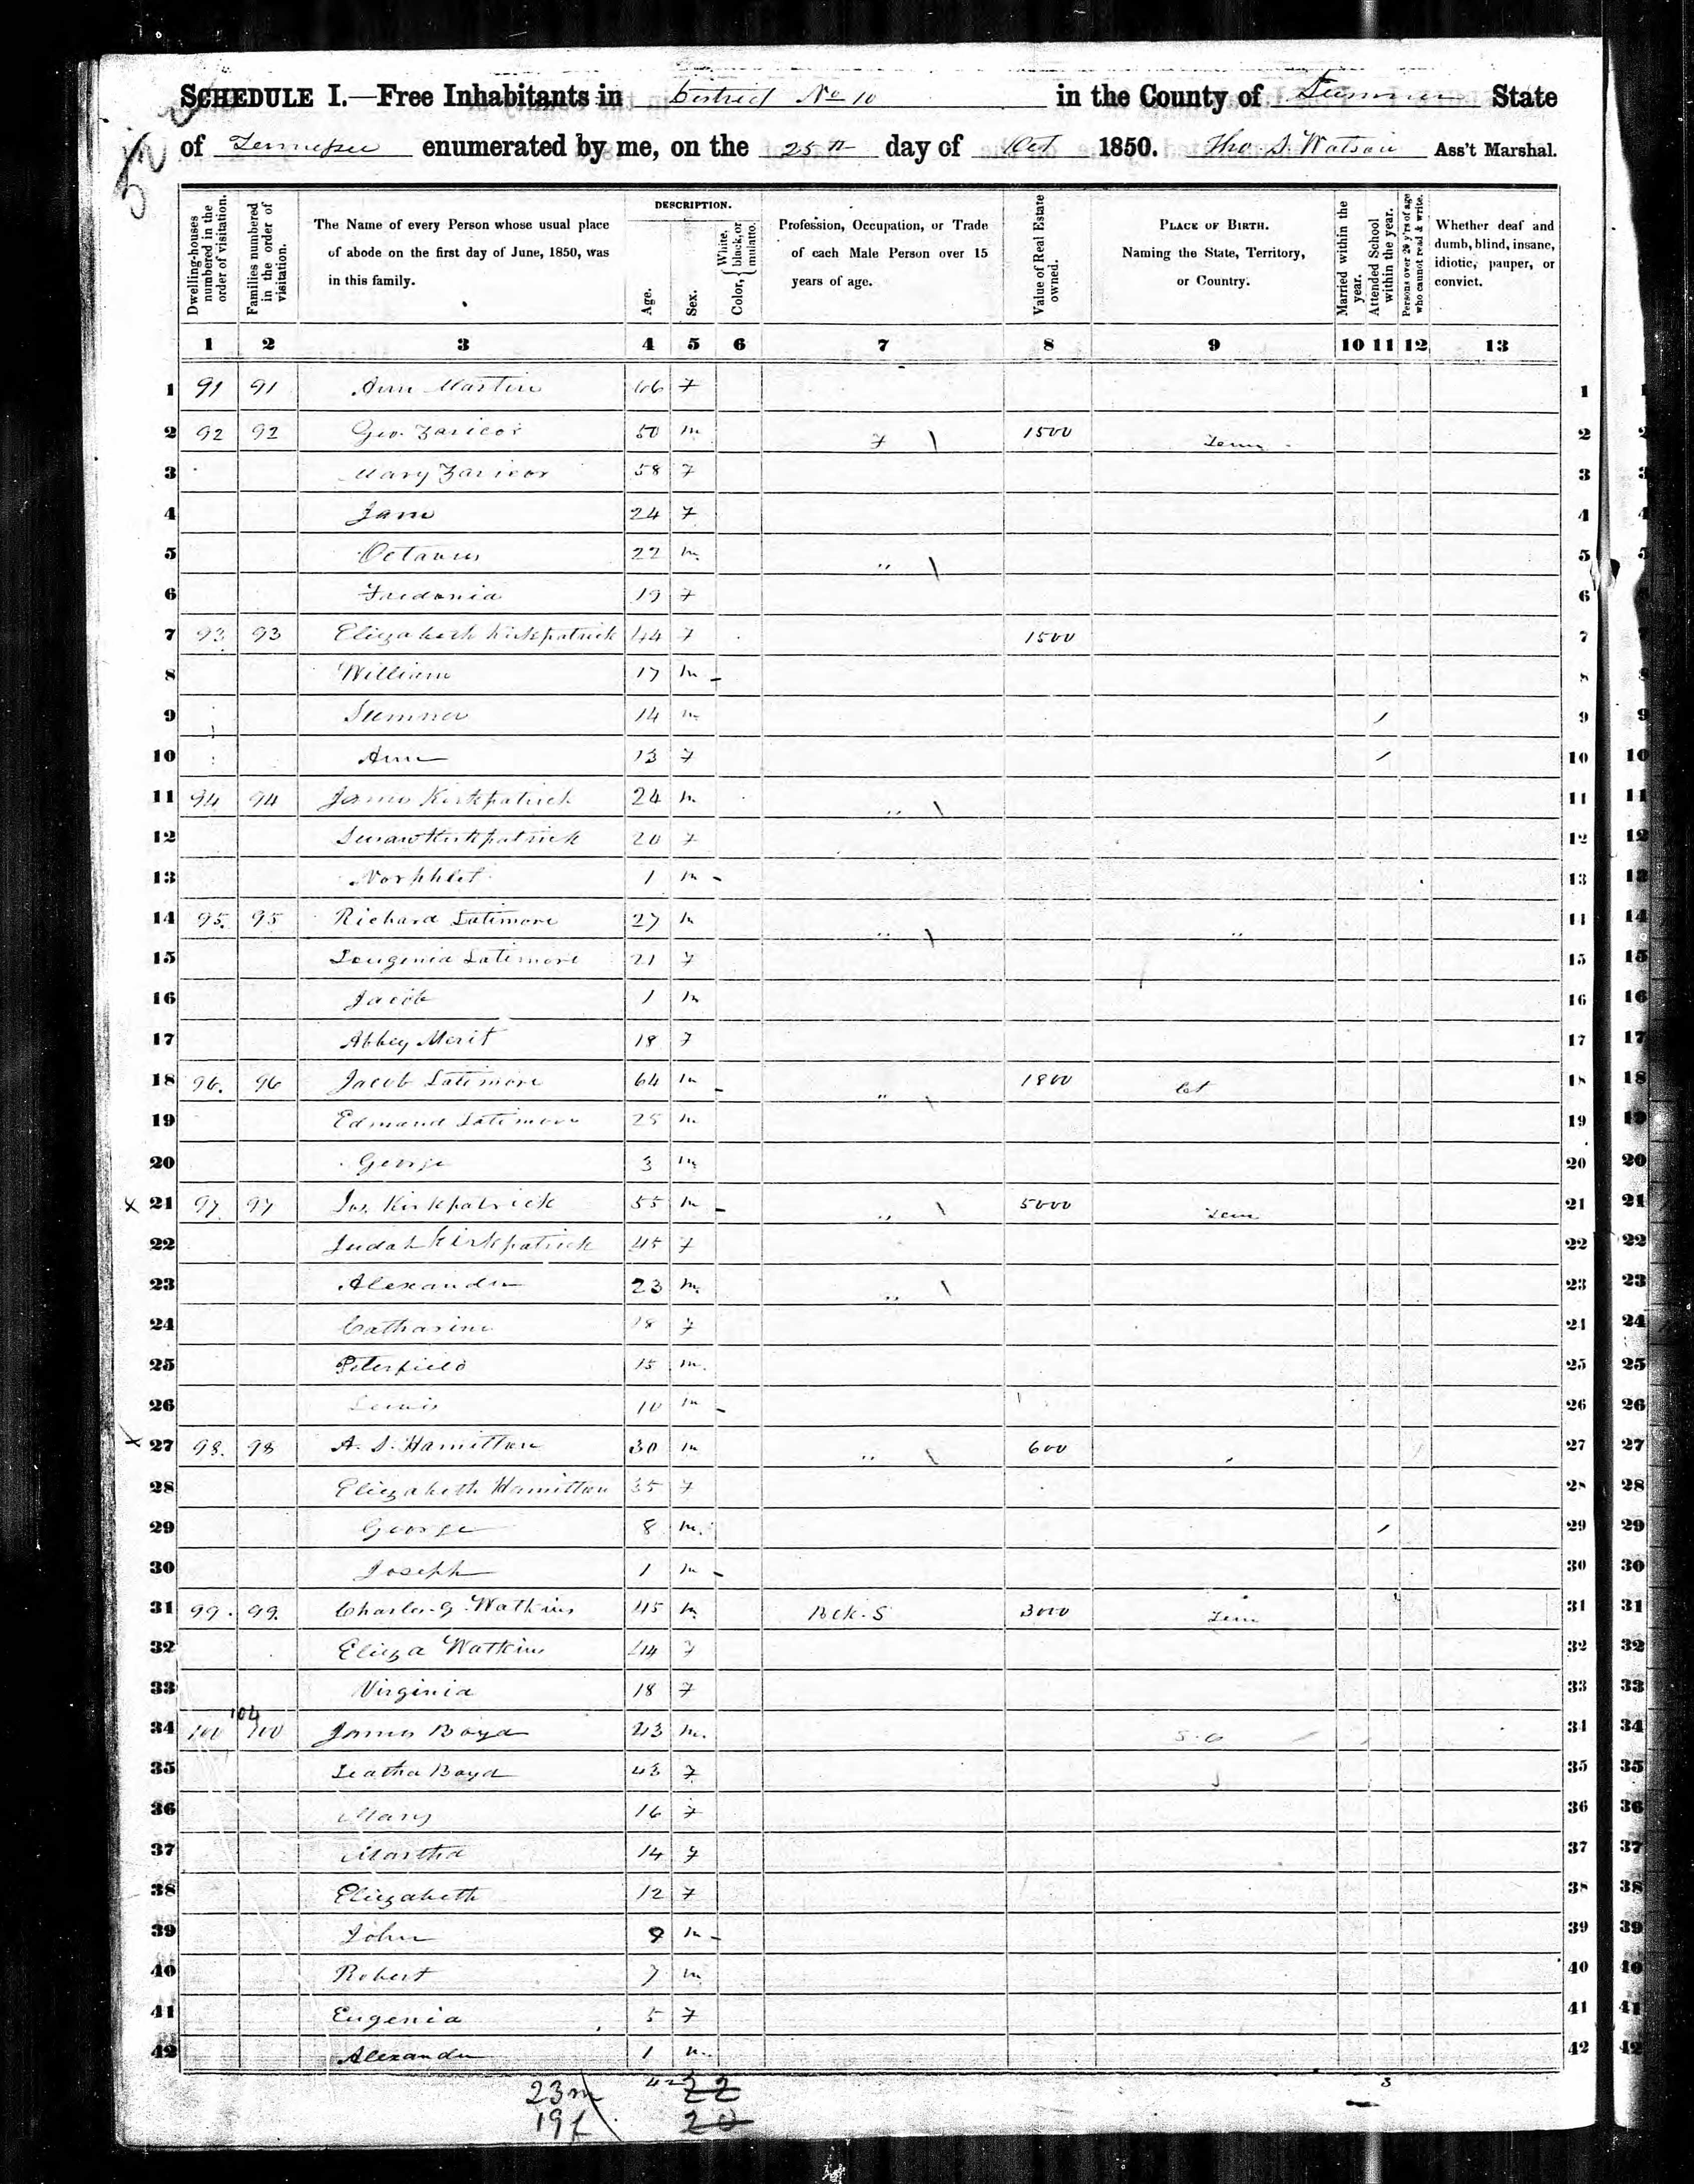 SCHEDULE I.—Free Inhabitants in District No 10 in the County of Sumner State
of Tennessee enumerated by me, on the 25th day of Oct 1850. Tho. S. Watson Ass't Marshal.
Dwelling-houses numbered in the order of visitation.
Families numbered in the order of visitation.
The Name of every Person whose usual place of abode on the first day of June, 1850, was in this family.
DESCRIPTION.
Age.
Sex.
Color, { White, black, or mulatto.
Profession, Occupation, or Trade of each Male Person over 15 years of age.
Value of Real Estate owned.
PLACE OF BIRTH. Naming the State, Territory, or Country.
Married within the year.
Attended School within the year.
Persons over 20 y'rs of age who cannot read & write.
Whether deaf and dumb, blind, insane, idiotic, pauper, or convict.
1 2 3 4 5 6 7 8 9 10 11 12 13
1 91 91 Ann Martin 66 F 1
2 92 92 Geo. Zaricor 50 m F \ 1500 Tenn 2
3 Mary Zaricor 58 F 3
4 Jane 24 F 4
5 Octavus 22 m " \ 5
6 Fredonia 19 F 6
7 93 93 Elizabeth Kirkpatrick 44 F 1500 7
8 William 17 m 8
9 Sumner 14 m / 9
10 Ann 13 F / 10
11 94 94 James Kirkpatrick 24 m " \ 11
12 Susan Kirkpatrick 20 F 12
13 Norphlet 1 m 13
14 95 95 Richard Latimore 27 m " \ " 14
15 Lougenia Latimore 21 F 15
16 Jacob 1 m 16
17 Abbey Merit 18 F 17
18 96 96 Jacob Latimore 64 m " \ 1800 Ct 18
19 Edmund Latimore 25 m 19
20 George 3 m 20
x 21 97 97 Jas. Kirkpatrick 55 m " \ 5000 Tenn 21
22 Judah Kirkpatrick 45 F 22
23 Alexander 23 m " \ 23
24 Catharine 18 F 24
25 Peterfield 15 m 25
26 Lewis 10 m 26
x 27 98 98 A. S. Hamilton 30 m " \ 600 27
28 Elizabeth Hamilton 35 F 28
29 George 8 m / 29
30 Joseph 1 m 30
31 99 99 Charles G. Watkins 45 m Bck. S 3000 Tenn 31
32 Eliza Watkins 44 F 32
33 Virginia 18 F 33
104
34 100 100 James Boyd 43 m S.C 34
35 Leatha Boyd 43 F 35
36 Mary 16 F 36
37 Martha 14 F 37
38 Elizabeth 12 F 38
39 John 9 m 39
40 Robert 7 m 40
41 Eugenia 5 F 41
42 Alexander 1 m 42
23 m 42 22
19 f 20